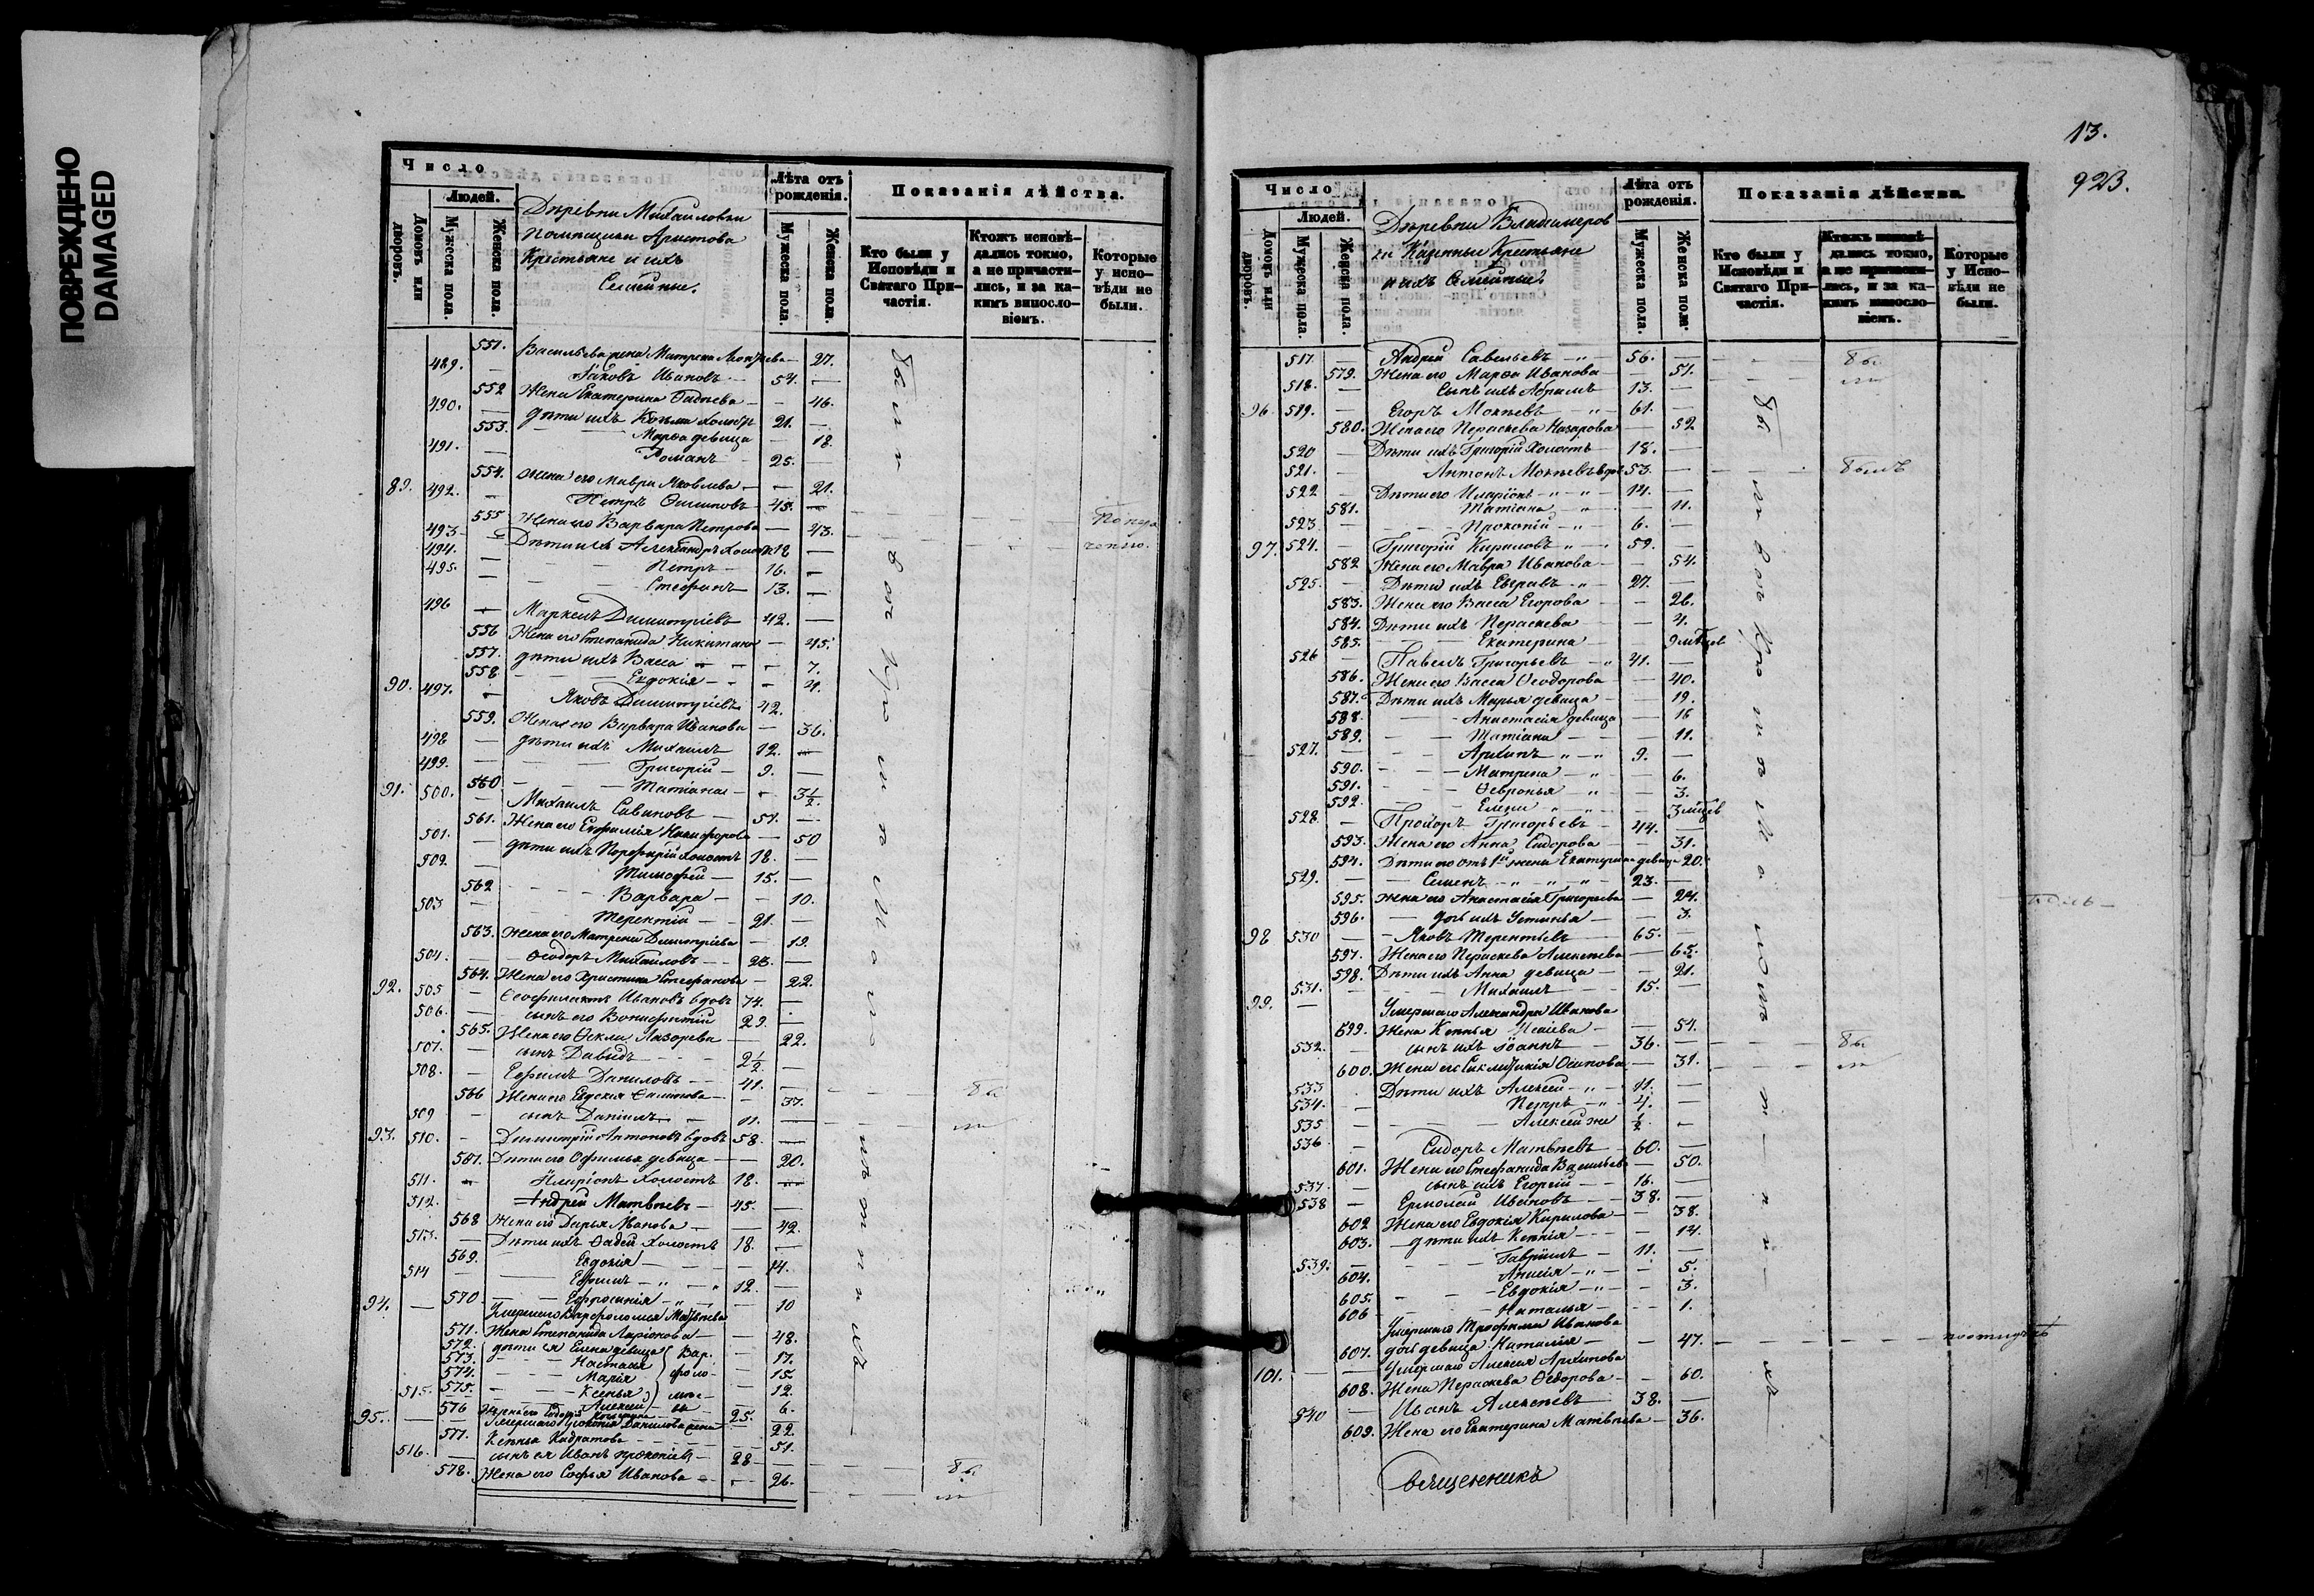 ПОВРЕЖДЕНО
DAMAGED
Число
Людей.
Домовъ или дворовъ.
Мужеска пола.
Женска пола.
Деревни Михайловки
Помѣщика Аристова
Крестьяне и ихъ
Семейные.
Лѣта отъ рожденія.
Мужеска пола.
Женска пола.
Показанія дѣйства.
Кто были у Исповѣди и Святаго При-
частія.
Ктожъ исповѣ-
дались токмо,
а не причасти-
лись, и за ка-
кимъ винословіемъ.
Которые у испо-
вѣди не были.
551. Васильева жена Матрена 27.
489. — Іаковъ Ивановъ 54. —
552 Жена Екатерина — 46.
490. — дѣти ихъ Козьма холостъ 21. —
553. Марѳа девица — 18.
491. — Романъ 25.
554. Жена его Мавра Яковлева — 21.
89. 492. — Петръ 45. —
555 Жена его Варвара Петрова — 43.
493 — Дѣти ихъ Александръ холостъ 18 —
494. — Петръ 16. —
495. — Стефанъ 13. —
496 — Димитріевъ 42. —
556 Жена его Степанида Никитина — 45.
557. дѣти ихъ Васса — 7.
558 Евдокія — 4.
90. 497. — Яковъ Димитріевъ 42.
559. Жена его Варвара Иванова — 36.
498 — дѣти ихъ Михаилъ 12. —
499. — Григорій 9. —
560 Татіана — 3½.
91. 500. — Михаилъ Савиновъ 51. —
561. Жена его Евфимія Никифорова — 50
501. — дѣти ихъ Порфирій холостъ 18. —
502. Тимофей 15. —
562 Варвара — 10.
503 — Терентій 21. —
563. Жена его Матрена Димитріева — 19.
504. — Ѳеодоръ Михайловъ 23. —
564. Жена его Христина Стефанова — 22.
92. 505 — Ѳеофилактъ Ивановъ вдовъ 74. —
506. — сынъ его Вонифатій 29. —
565. Жена его Ѳекла Лазорева — 22.
507. — сынъ Давидъ 2½ —
508. — Ефимъ Даниловъ 41. —
566 Жена его Евдокія — 37.
509 — сынъ Даніилъ 11. —
93. 510. — Димитрій Антоновъ вдовъ 58. —
567. Дѣти его Офимья девица — 20.
511. — Иларіонъ холостъ 18. —
512. — Андрей Матвѣевъ 45. —
568 Жена его Дарья Иванова — 42.
513. — Дѣти ихъ Ѳадей холостъ 18. —
569. Евдокія — 14.
514 — Ефимъ 12. —
570. Евфросинія — 10
94. — Умершаго Варфоломея Матвѣева
571. Жена Степанида Ларіонова — 48.
572. дѣти ея Елена девица — 17.
573. Настасія — 15.
574. Марія — 12.
515. 575. Ксенья — 6.
576 Алексей 25.
95. — Умершаго Прокопія Данилова жена 22.
577. Ксенья — 51.
516. — сынъ ея Иванъ Прокопіевъ 28 —
578. Жена его Софья Иванова — 26.
13.
923.
Число
Людей.
Домовъ или дворовъ.
Мужеска пола.
Женска пола.
Деревни Владимеров
ки Казенные Крестьяне
и ихъ Семейные
Лѣта отъ рожденія.
Мужеска пола.
Женска пола.
Показанія дѣйства.
Кто были у Исповѣди и Святаго При-
частія.
Ктожъ исповѣ-
дались токмо,
а не причасти-
лись, и за ка-
кимъ винословіемъ.
Которые у Испо-
вѣди не были.
517. — Андрей Савельевъ 56. —
579. Жена его Марѳа Иванова — 51.
518. — Сынъ ихъ Абрамъ 13. —
96. 519. — Егоръ Мокѣевъ 61. —
580. Жена его Параскева Назарова — 52
520 — Дѣти ихъ Григорій холостъ 18. —
521. — Антонъ Мокѣевъ вдов 53. — былъ
522 — Дѣти его Иларіонъ 14. —
581. Татіана — 11.
523. — Прокопій 6. —
97. 524. — Григорій Кириловъ 59. —
582 Жена его Мавра Иванова — 54.
525. — Дѣти ихъ 27. —
583. Жена его Васса Егорова — 26.
584. Дѣти ихъ Параскева — 4.
585. Екатерина — 9 мѣсяц
526 — Павелъ Григорьевъ 41. —
586. Жена его Васса Ѳеодорова — 40.
587. Дѣти ихъ Марья девица — 19.
588. Анастасія девица — 16
589. Татіана — 11.
527. — Архипъ 9. —
590. Матрена — 6.
591. Ѳевронья — 3.
592. Елена — 3 мѣсяц
528. — Прохоръ Григорьевъ 44. —
593. Жена его Анна Сидорова — 31.
594. Дѣти его отъ 1ой жены Екатерина девица 20.
529. — Семенъ 23. —
595. Жена его Анастасія Григорьева — 24.
596. дочь ихъ Устинья — 3.
98 530 — Яковъ Терентьевъ 65. —
597. Жена его Параскева Алексѣева — 65.
598. Дѣти ихъ Анна девица — 21.
531. — Михаилъ 15. —
99. — Умершаго Александра Иванова
599. Жена Ксенья — 54.
532. — сынъ ихъ Іоаннъ 36. —
600. Жена его Осипова — 31.
533 Дѣти ихъ Алексѣй 11. —
534. — Петръ 4. —
535 — Алексей же ½ —
536 — Сидоръ Матвѣевъ 60. —
601. Жена его Степанида Васильева — 50.
537 — сынъ ихъ Егорей 16. —
538 — Ермолай Ивановъ 38. —
602 Жена его Евдокія Кирилова — 38.
603. дѣти ихъ Ксенія — 14.
539. — Гавріилъ 11. —
604. Анисія — 5.
605. Евдокія — 3.
606 Наталья — 1.
Умершаго Трофима Иванова
607. дочь девица Наталія — 47.
101. — Умершаго Алексея Архипова
608. Жена Параскева — 60.
540 — Иванъ Алексѣевъ 38. —
609. Жена его Екатерина Матвѣева — 36.
Священникъ